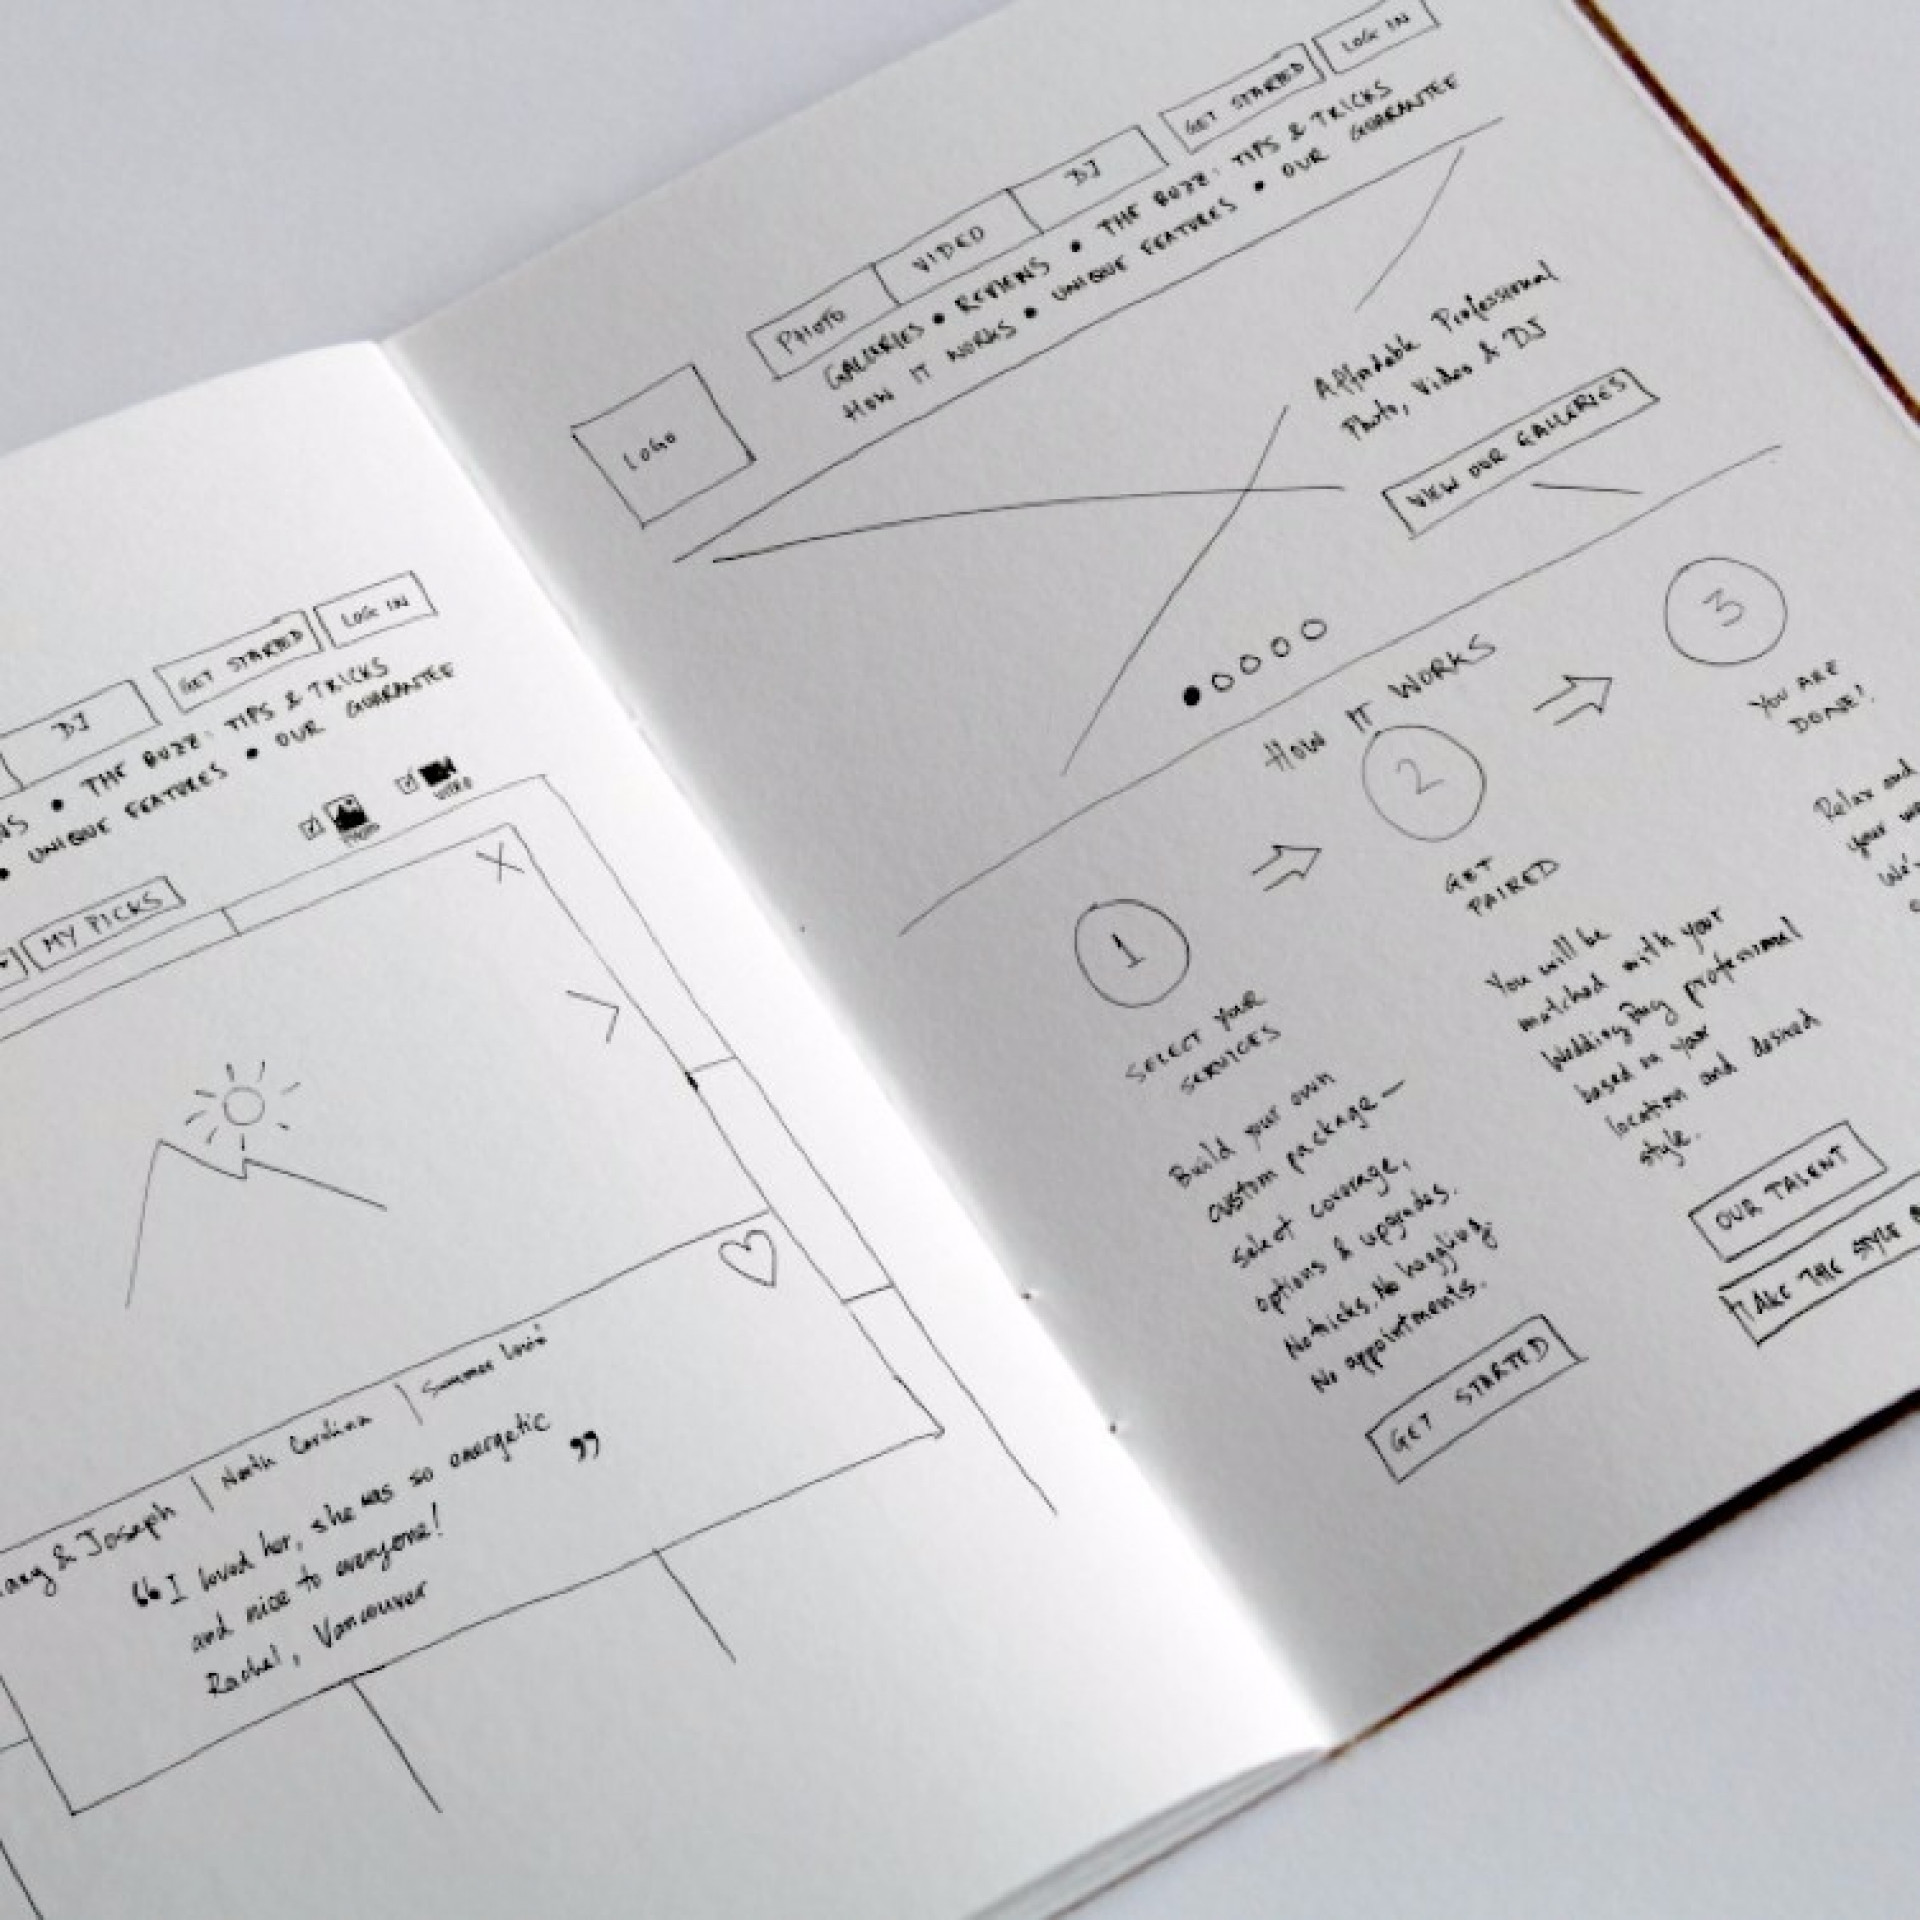 DJ
GET STARTED
LOG IN
THE BUZZ: TIPS & TRICKS
UNIQUE FEATURES • OUR GUARANTEE
PHOTO
VIDEO
MY PICKS
X
& Joseph | North Carolina | Summer Lovin'
“I loved her, she was so energetic
and nice to everyone!”
Rachel, Vancouver
LOGO
PHOTO
VIDEO
DJ
GET STARTED
LOG IN
GALLERIES • REVIEWS • THE BUZZ: TIPS & TRICKS
HOW IT WORKS • UNIQUE FEATURES • OUR GUARANTEE
Affordable Professional
Photo, Video & DJ
VIEW OUR GALLERIES
HOW IT WORKS
1
SELECT YOUR
SERVICES
Build your own
custom package —
select coverage,
options & upgrades.
No tricks. No haggling.
No appointments.
GET STARTED
2
GET
PAIRED
You will be
matched with your
professional
based on your
location and desired
style.
OUR TALENT
TAKE THE STYLE
3
YOU ARE
DONE!
Relax and
your
We'